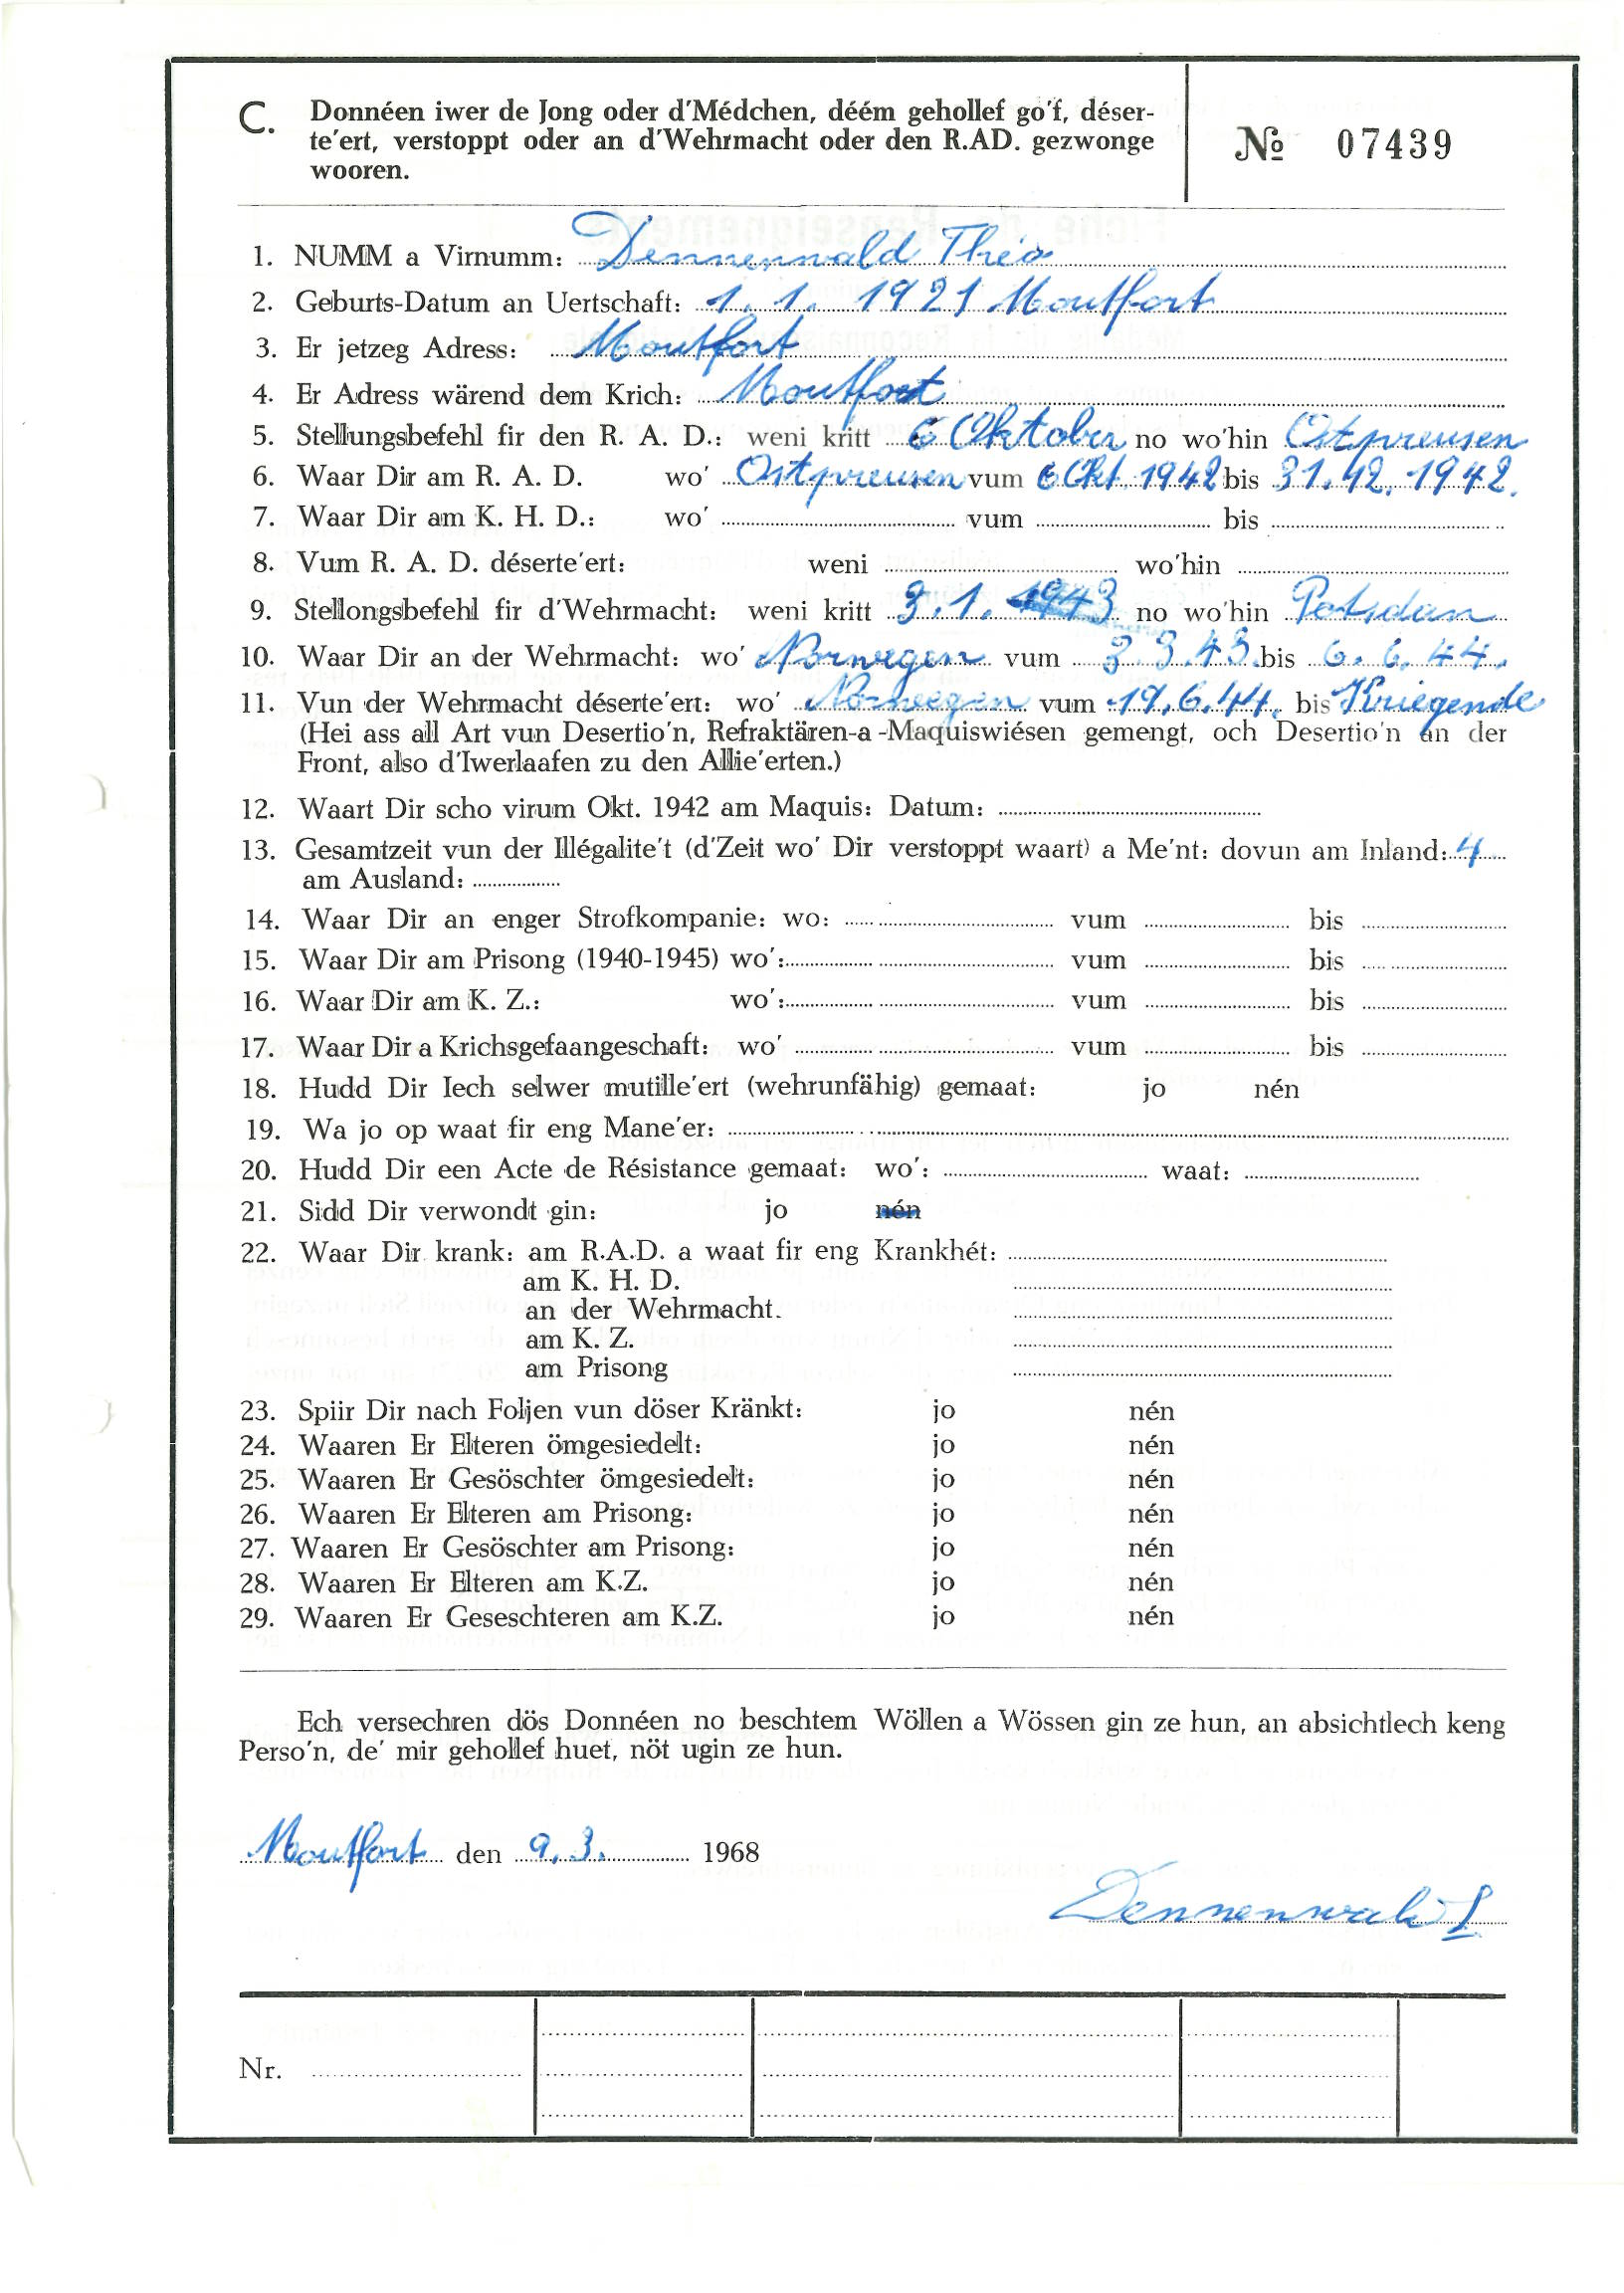 C. Donnéen iwer de Jong oder d'Médchen, déém gehollef go'f, déser-
te'ert, verstoppt oder an d'Wehrmacht oder den R.AD. gezwonge
wooren.
№ 07439
1. NUMM a Virnumm: Dennenwald Théo
2. Geburts-Datum an Uertschaft: 1. 1. 1921 Moutfort
3. Er jetzeg Adress: Moutfort
4. Er Adress wärend dem Krich: Moutfort
5. Stellungsbefehl fir den R. A. D.: weni kritt 6 Oktober no wo'hin Ostpreusen
6. Waar Dir am R. A. D. wo' Ostpreusen vum 6 Okt. 1942 bis 31.12.1942.
7. Waar Dir am K. H. D.: wo' vum bis
8. Vum R. A. D. déserte'ert: weni wo'hin
9. Stellongsbefehl fir d'Wehrmacht: weni kritt 3.1.1943 no wo'hin Potsdam
10. Waar Dir an der Wehrmacht: wo' Norwegen vum 3.3.43. bis 6.6.44.
11. Vun der Wehrmacht déserte'ert: wo' Norwegen vum 19.6.44. bis Kriegende
(Hei ass all Art vun Desertio'n, Refraktären-a-Maquiswiésen gemengt, och Desertio'n an der
Front, also d'Iwerlaafen zu den Allie'erten.)
12. Waart Dir scho virum Okt. 1942 am Maquis: Datum:
13. Gesamtzeit vun der Illégalite't (d'Zeit wo' Dir verstoppt waart) a Me'nt: dovun am Inland: 4
am Ausland:
14. Waar Dir an enger Strofkompanie: wo: vum bis
15. Waar Dir am Prisong (1940-1945) wo': vum bis
16. Waar Dir am K. Z.: wo': vum bis
17. Waar Dir a Krichsgefaangeschaft: wo' vum bis
18. Hudd Dir Iech selwer mutille'ert (wehrunfähig) gemaat: jo nén
19. Wa jo op waat fir eng Mane'er:
20. Hudd Dir een Acte de Résistance gemaat: wo': waat:
21. Sidd Dir verwondt gin: jo nén
22. Waar Dir krank: am R.A.D. a waat fir eng Krankhét:
am K. H. D.
an der Wehrmacht.
am K. Z.
am Prisong
23. Spiir Dir nach Foljen vun döser Kränkt: jo nén
24. Waaren Er Elteren ömgesiedelt: jo nén
25. Waaren Er Gesöschter ömgesiedelt: jo nén
26. Waaren Er Elteren am Prisong: jo nén
27. Waaren Er Gesöschter am Prisong: jo nén
28. Waaren Er Elteren am K.Z. jo nén
29. Waaren Er Geseschteren am K.Z. jo nén
Ech versechren dös Donnéen no beschtem Wöllen a Wössen gin ze hun, an absichtlech keng
Perso'n, de' mir gehollef huet, nöt ugin ze hun.
Moutfort den 9. 3. 1968
Dennenwald
Nr.